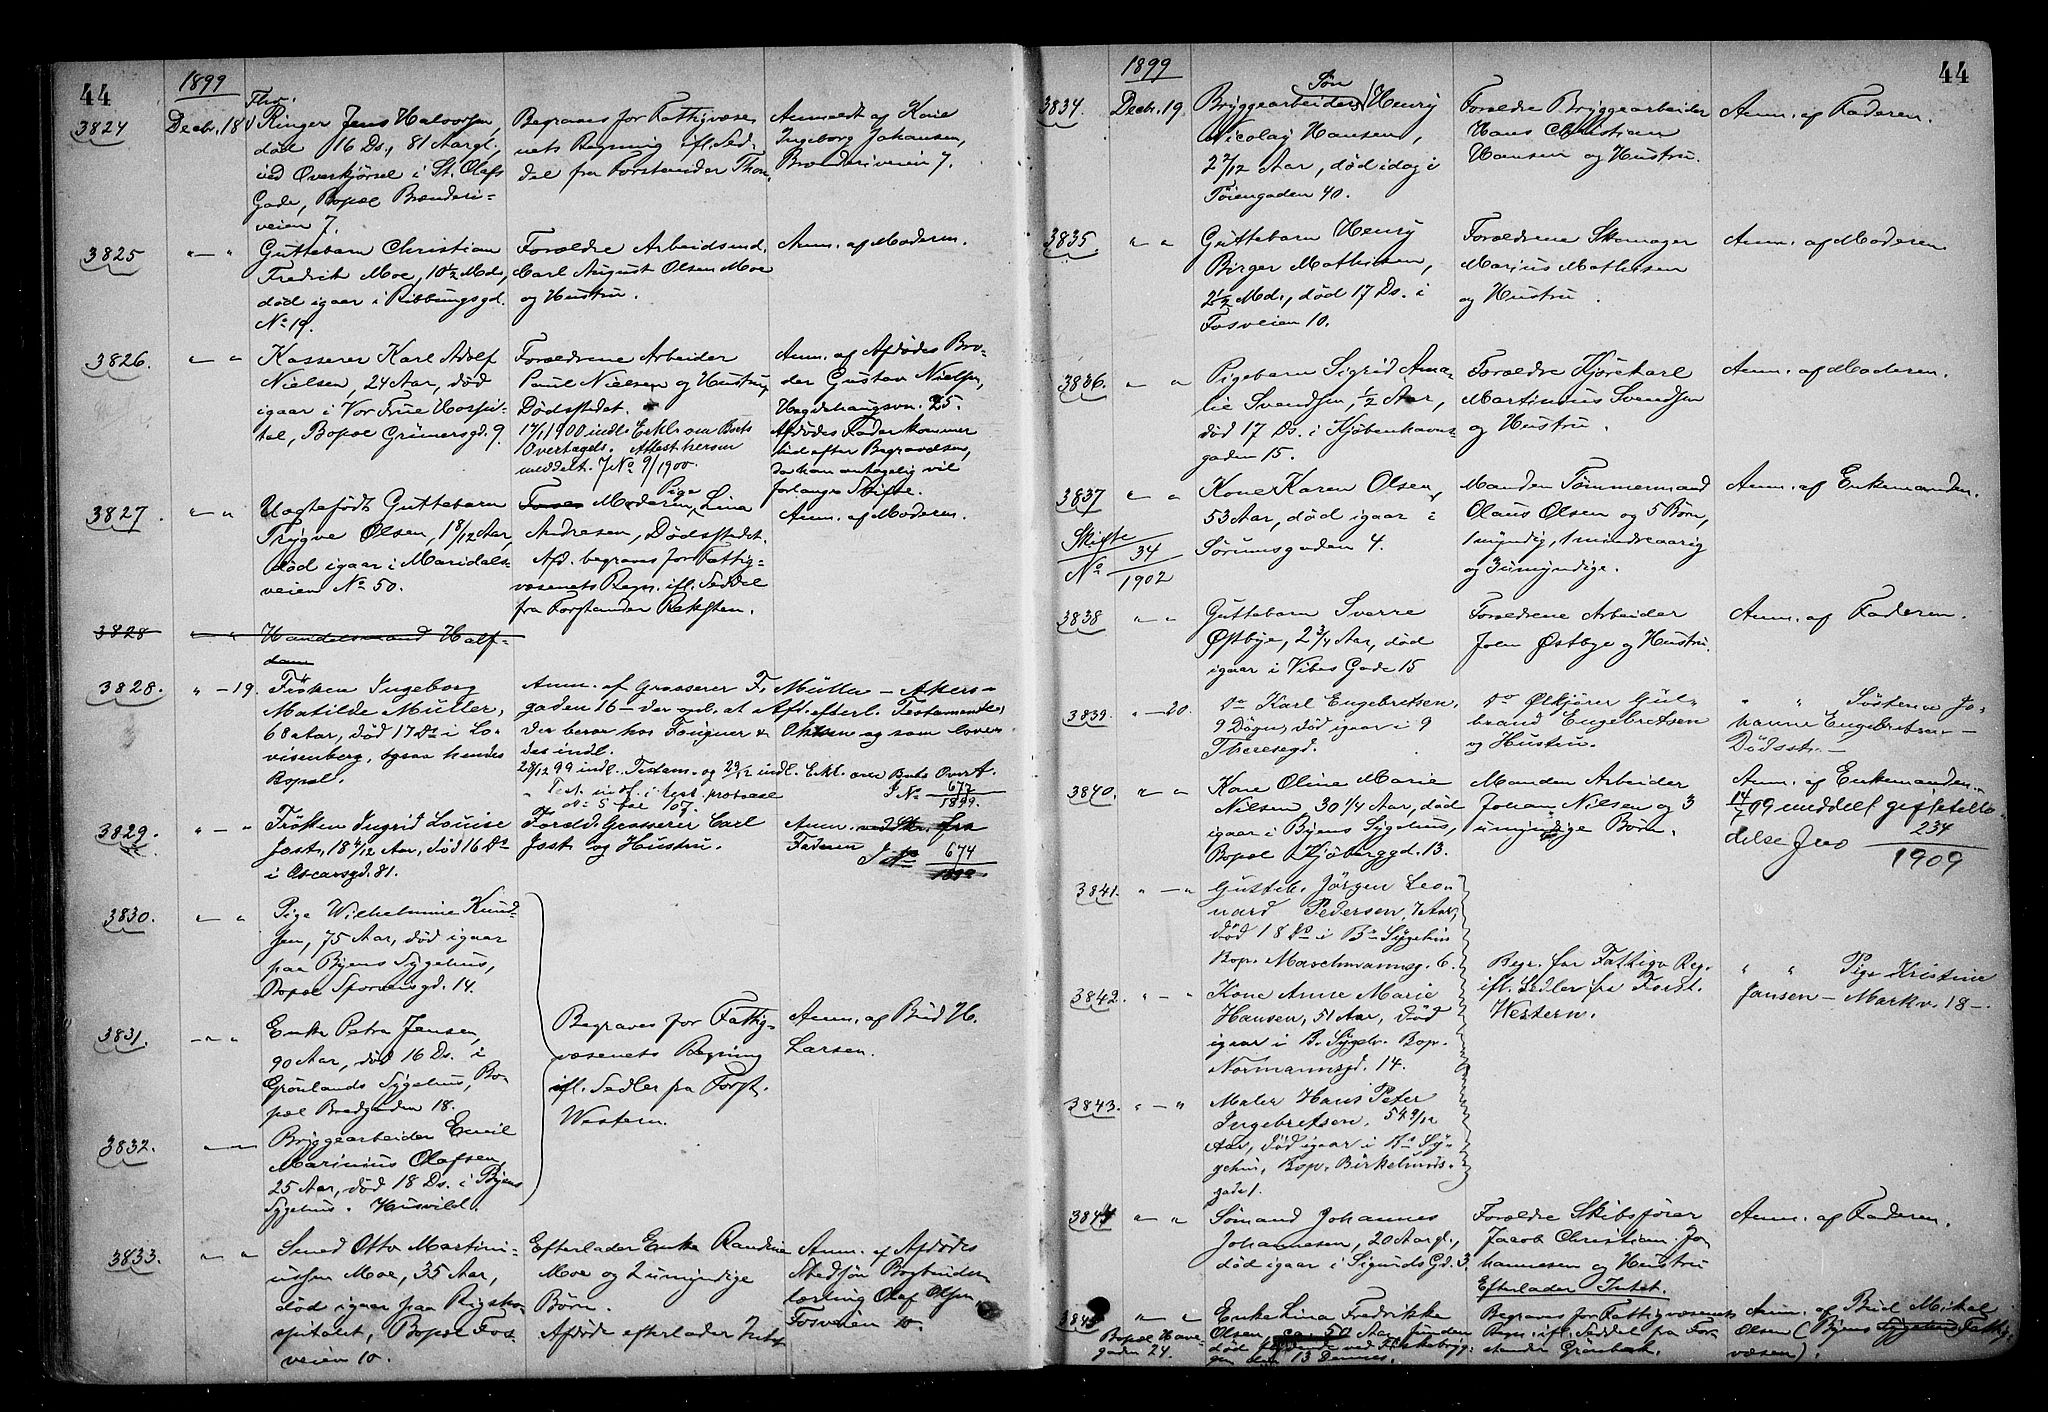 44
1899
3824
Decbr. 18
Fhv.
Ringer Jens Halvorsen,
død 16 Ds., 81 Aar gl.,
ved Overkjørsel i St. Olafs
Gade, Bopæl Brænderi-
veien 7.
Begraves for Fattigvæse-
nets Regning ifl. Sed-
del fra Forstander Thon.
Anmeldt af Kone
Ingeborg Johansen,
Brænderiveien 7.
3825
" — "
Guttebarn Christian
Fredrik Moe, 10½ Md.,
død igaar i Ribbungsgd.
No 19.
Forældre Arbeidsmd.
Carl August Olsen Moe
og Hustru.
Anm. af Moderen.
3826.
" — "
Kasserer Karl Adolf
Nielsen, 24 Aar, død
igaar i Vor Frue Hospi-
tal, Bopæl Grünersgd. 9.
Forældrene Arbeider
Paul Nielsen og Hustru,
Dødsstedet.
17/1 1900 indl. Erkl. om Boets
Overtagels. Attest herom
meddelt. J No 9/1900.
Anm. af Afdødes Bro-
der Gustav Nielsen,
Hegdehaugsvn. 25.
Afdødes Fader kommer
hid efter Begravelsen,
da han antagelig vil
forlange Skifte.
3827.
" — "
Uægtefødt Guttebarn
Trygve Olsen, 1 8/12 Aar,
død igaar i Maridals-
veien No 50.
Moderen, Pige Lina
Andresen, Dødsstedet.
Afd. begraves for Fattig-
væsenets Regn. ifl. Seddel
fra Forstander Reksten.
Anm. af Moderen.
3828
" — "
Handelsmand Half-
dan
3828.
" — 19.
Frøken Ingeborg
Matilde Müller,
68 Aar, død 17 Ds i Lo-
visenberg, ogsaa hendes
Bopæl.
Anm. af Grosserer F. Müller — Akers-
gaden 16 — der opl. at Afd. efterl. Testamente,
der beror hos Fougner &
og som lover
des indl.
28/12 99 indl. Testam. og 29/12 indl. Erkl. om Boets Overt.
No 5 fol 107.
J No 677/1899.
3829.
" — "
Frøken Ingrid Louise
Jost, 18 4/12 Aar, død 16 Ds
i Oscarsgd. 81.
Foræld. Grosserer Carl
Jost og Hustru.
Anm. ved Skr. fra
Faderen
J No 674/1899
3830.
" — "
Pige Wilhelmine Knud-
sen, 75 Aar, død igaar
paa Byens Sygehus,
Bopæl Sporveisgd. 14.
3831.
" — "
Enke Petra Jensen,
90 Aar, død 16 Ds. i
Grønlands Sygehus, Bo-
pæl Bredgaden 18.
Begraves for Fattig-
væsenets Regning
ifl. Sedler fra Forst.
Western.
Anm. af Bud H.
Larsen.
3832.
" — "
Bryggearbeider Emil
Marinius Olafsen,
25 Aar, død 18 Ds. i Byens
Sygehus. Husvild.
3833.
" — "
Smed Otto Martini-
ussen Moe, 35 Aar,
død igaar paa Rigsho-
spitalet, Bopæl Fos-
veien 10.
Efterlader Enke Randine
Moe og 2 umyndige
Børn.
Afdøde efterlader Intet.
Anm. af Afdødes
Stedsøn Bogbinder-
lærling Olaf Olsen,
Fosveien 10.
44
1899
3834.
Decbr. 19.
Bryggearbeiders Søn Henry
Nicolay Hansen,
2 2/12 Aar, død idag i
Tøiengaden 40.
Forældre Bryggearbeider
Hans Christian
Hansen og Hustru.
Anm. af Faderen.
3835.
" — "
Guttebarn Henry
Birger Mathisen,
2½ Md., død 17 Ds. i
Fosveien 10.
Forældrene Skomager
Marius Mathisen
og Hustru.
Anm. af Moderen.
3836.
" — "
Pigebarn Sigrid Ama-
lie Svendsen, ½ Aar,
død 17 Ds. i Kjøbenhavns-
gaden 15.
Forældre Kjørekarl
Martinius Svendsen
og Hustru.
Anm. af Moderen.
3837
" — "
Skifte
No 34/1902
Kone Karen Olsen,
53 Aar, død igaar i
Sørumsgaden 4.
Manden Tømmermand
Olaus Olsen og 5 Børn,
1 myndig, 1 mindreaarig
og 3 umyndige.
Anm. af Enkemanden.
3838
" — "
Guttebarn Sverre
Østbye, 2 3/4 Aar, død
igaar i Vibes Gade 15
Forældrene Arbeider
Joen Østbye og Hustru.
Anm. af Faderen.
3839.
" — 20.
Do Karl Engebretsen,
9 Døgn, død igaar i 9
Theresegd.
Do Ølkjører Gul-
brand Engebretsen
og Hustru.
" " Søsteren Jo-
hanne Engebretsen —
Dødsst. —
3840.
" — "
Kone Oline Marie
Nilsen, 30 1/4 Aar, død
igaar i Byens Sygehus,
Bopæl Kjøberggd. 13.
Manden Arbeider
Johan Nilsen og 3
umyndige Børn.
Anm. af Enkemanden.
234/1909
3841.
" — "
Gutteb. Jörgen Leo-
nard Pedersen, 7 Aar,
død 18 Ds i Bs Sygehus
Bop. Maschmannsg. 6.
3842.
" — "
Kone Anne Marie
Hansen, 51 Aar, død
igaar i B. Sygeh. Bop.
Normannsgd. 14.
Begr. for Fattigv. Reg.
ifl. Sedler fra Forst.
Western.
" " Pige Kristine
Jansen — Markv. 18 —.
3843.
" — "
Maler Hans Peter
Ingebretsen, 54 9/12
Aar, død igaar i Ds Sy-
gehus, Bop. Birkelunds-
gade 1.
3844
" — "
Sømand Johannes
Johannesen, 20 Aar gl.,
død igaar i Sigurds Gd. 3.
Forældre Skibsfører
Jacob Christian Jo-
hannesen og Hustru
Efterlader Intet.
Anm. af Faderen.
3845
" — "
Bopæl Have-
gaden 24.
Enke Lina Fredrikke
Olsen, ca. 50 Aar, funden
død flydende ved Fiskebryg-
gen den 13 Dennes.
Begraves for Fattigvæsenets
Regn. ifl. Seddel fra For-
stander Grønbæk.
Anm. af Bud Mikal
Olsen (Byens Sygehus Fattig-
væsen).